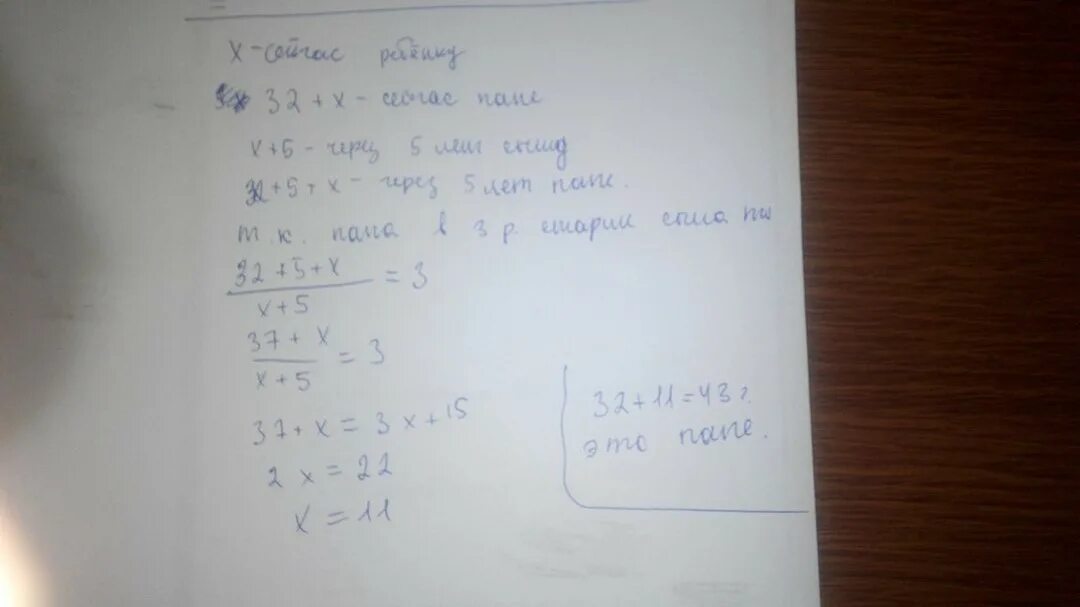 x - сейчас ребёнку
32 + x - сейчас папе
x+5 - через 5 лет сыну
32+5+x - через 5 лет папе.
т.к. папа в 3 р. старше сына
32+5+x / x+5 = 3
37+x / x+5 = 3
37+x = 3x+15
2x = 22
x = 11
32+11=43 г.
это папе.